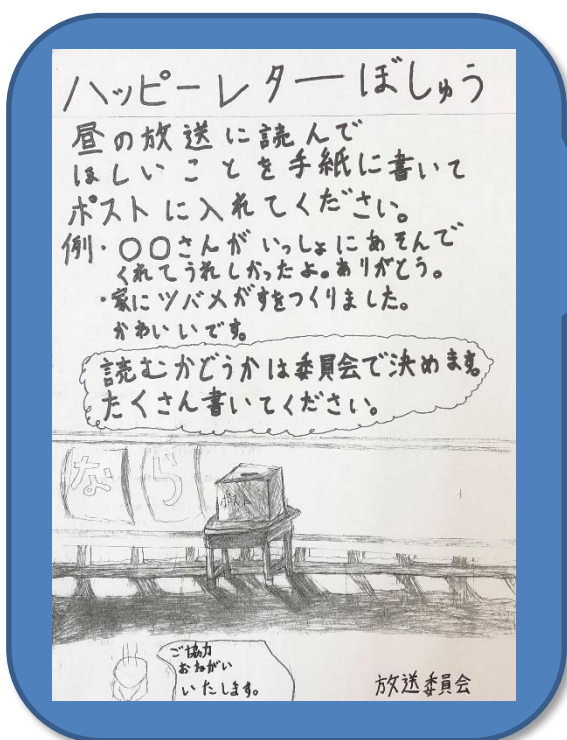 ハッピーレターぼしゅう
昼の放送に読んで
ほしいことを手紙に書いて
ポストに入れてください。
例・〇〇さんがいっしょにあそんで
くれてうれしかったよ。ありがとう。
・家にツバメがすをつくりました。
かわいいです。
読むかどうかは委員会で決めます。
たくさん書いてください。
なら
ご協力
おねがい
いたします。
放送委員会